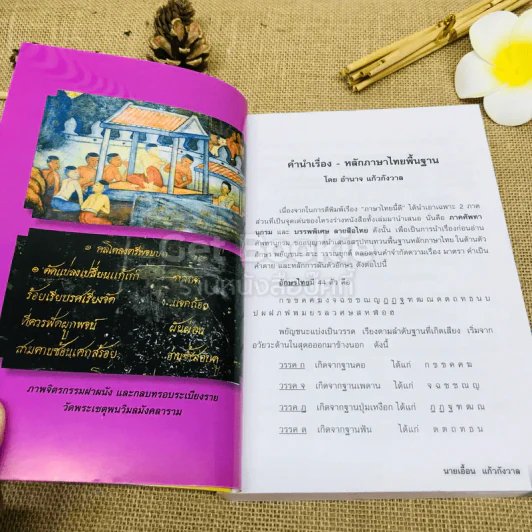 ๏ ตัดแบ่งเปลี่ยนแก้เกี้
ร้อยเรียบรรดเรียงจัด
ที่ควรพัดผูกพจน์ ผันผ่อน
ภาพจิตรกรรมฝาผนัง และกลบทรอบระเบียงราย
วัดพระเชตุพนวิมลมังคลาราม
คำนำเรื่อง - หลักภาษาไทยพื้นฐาน
โดย อำนาจ แก้วกังวาล
เนื่องจากในการตีพิมพ์เรื่อง "ภาษาไทยนี้ดี" ได้นำเอาเฉพาะ 2 ภาค
ส่วนที่เป็นจุดเด่นของโครงร่างหนังสือทั้งเล่มมานำเสนอ นั่นคือ ภาคศัพทา
นุกรม และ บรรพพิเศษ ลายสือไทย ดังนั้น เพื่อเป็นการนำเรื่องก่อนอ่าน
ศัพทานุกรม ขออนุญาตนำเสนอสรุปทบทวนพื้นฐานหลักภาษาไทย ในด้านตัว
อักษร พยัญชนะ สระ วรรณยุกต์ ตลอดจนคำจำกัดความเรื่อง มาตรา คำเป็น
คำตาย และหลักการผันตัวอักษร ดังต่อไปนี้
อักษรไทยมี 44 ตัว คือ
ก ข ฃ ค ฅ ฆ ง จ ฉ ช ซ ฌ ญ ฎ ฏ ฐ ฑ ฒ ณ ด ต ถ ท ธ น บ
ป ผ ฝ พ ฟ ภ ม ย ร ล ว ศ ษ ส ห ฬ อ ฮ
พยัญชนะแบ่งเป็นวรรค เรียงตามลำดับฐานที่เกิดเสียง เริ่มจาก
อวัยวะด้านในสุดออกมาข้างนอก ดังนี้
วรรค ก เกิดจากฐานคอ ได้แก่ ก ข ฃ ค ฅ ฆ
วรรค จ เกิดจากฐานเพดาน ได้แก่ จ ฉ ช ซ ฌ ญ
วรรค ฎ เกิดจากฐานปุ่มเหงือก ได้แก่ ฎ ฏ ฐ ฑ ฒ ณ
วรรค ด เกิดจากฐานฟัน ได้แก่ ด ต ถ ท ธ น
นายเอื้อน แก้วกังวาล